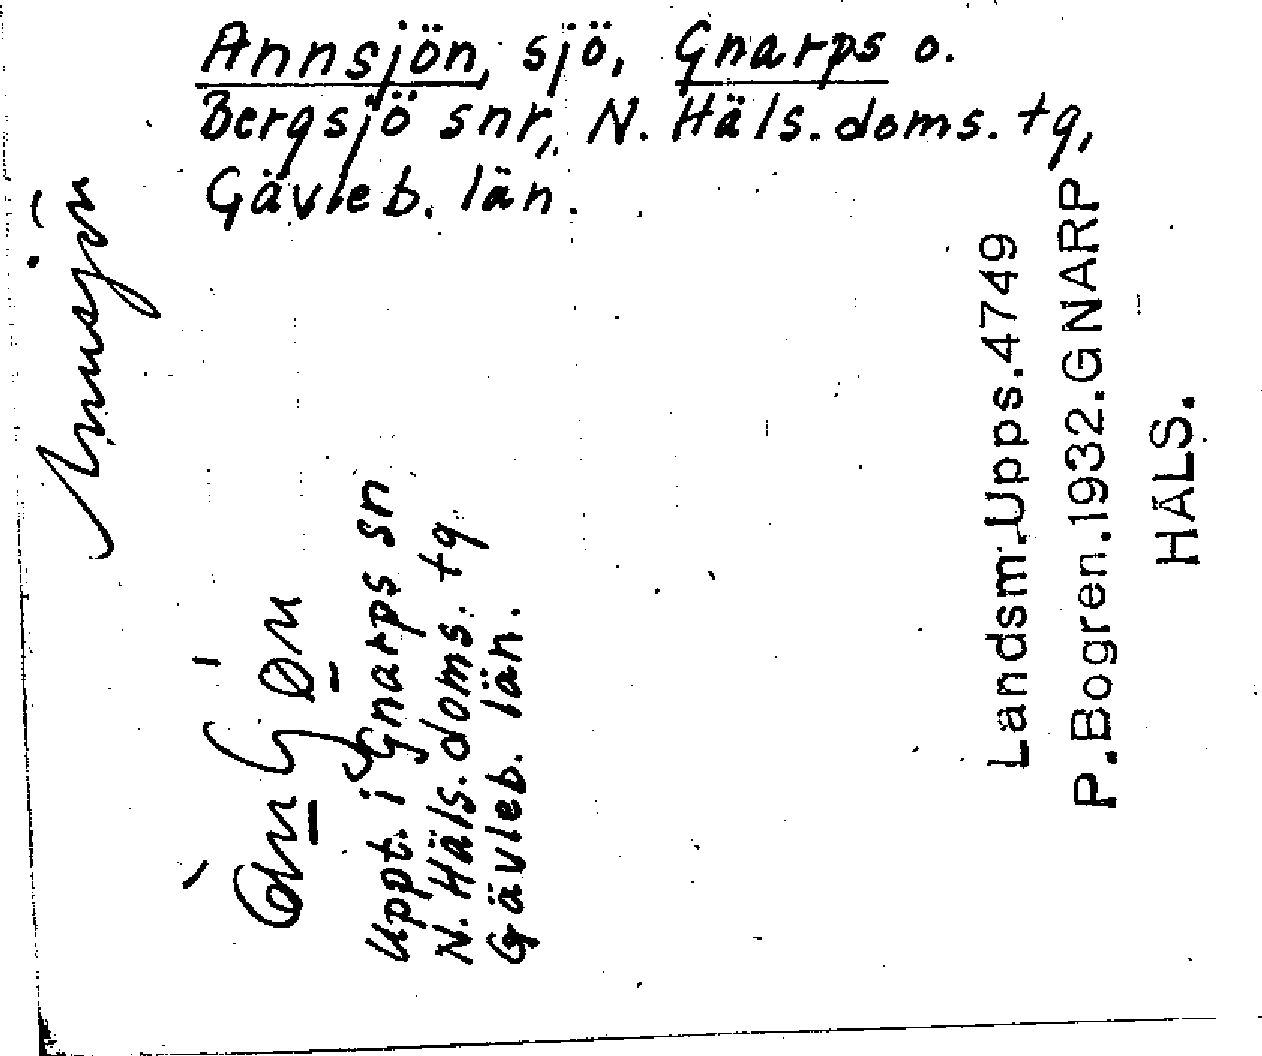 Annsjön, sjö, Gnarps o.
Bergsjö snr, N. Häls. doms. tg,
Gävleb. län.
Annsjön
Uppt. i Gnarps sn
N. Häls. doms. tg
Gävleb. län.
Landsm.Upps.4749
P.Bogren.1932.GNARP
HÄLS.